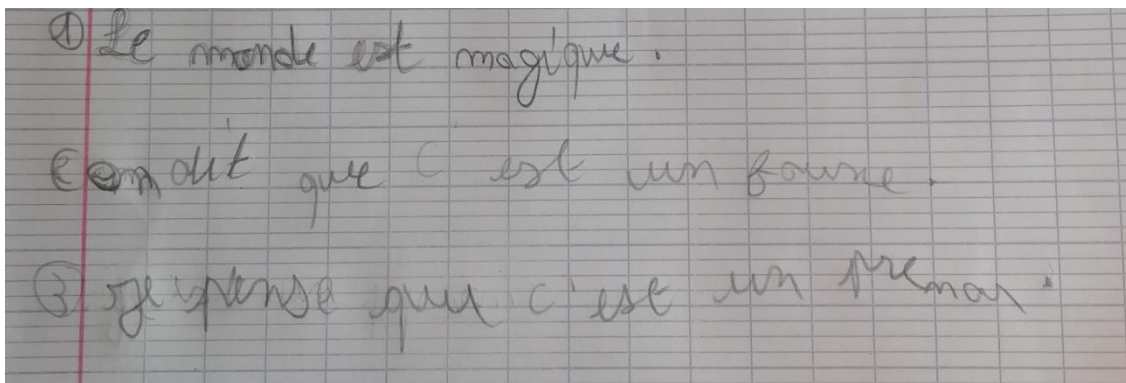 ① Le monde est magique.
on dit que c est un
③ je pense que c'est un